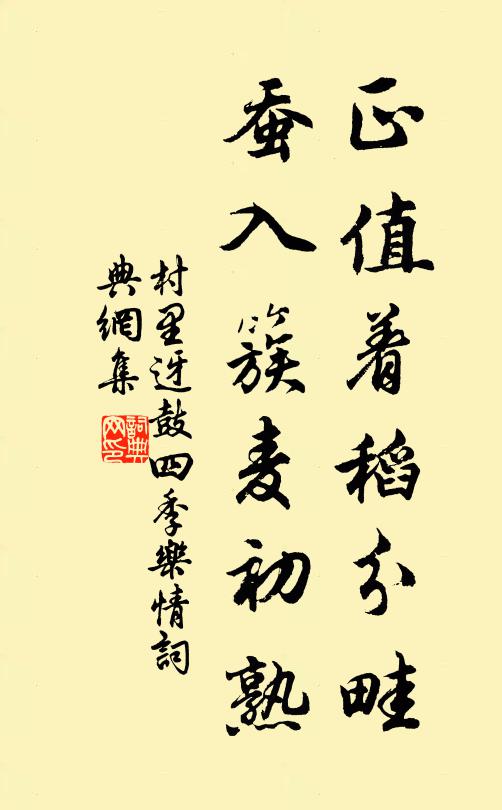 正值着稻分畦
蚕入簇麦初熟
村里迓鼓四季樂情詞
典網集
詞典网印